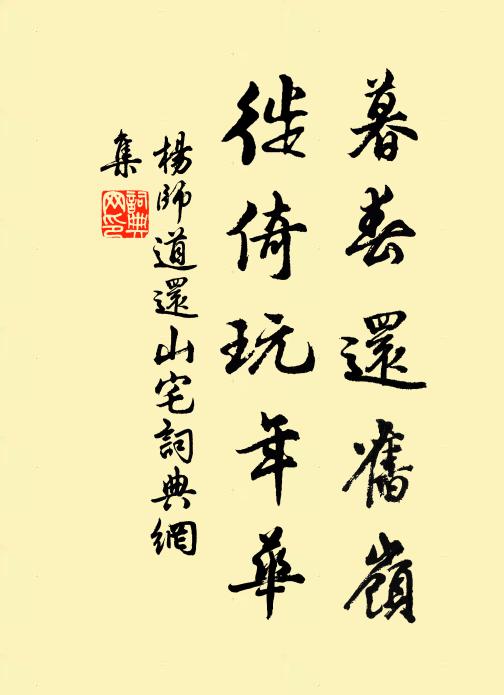 暮春還舊嶺
徙倚玩年華
楊師道還山宅詞典網
集
詞典
网印